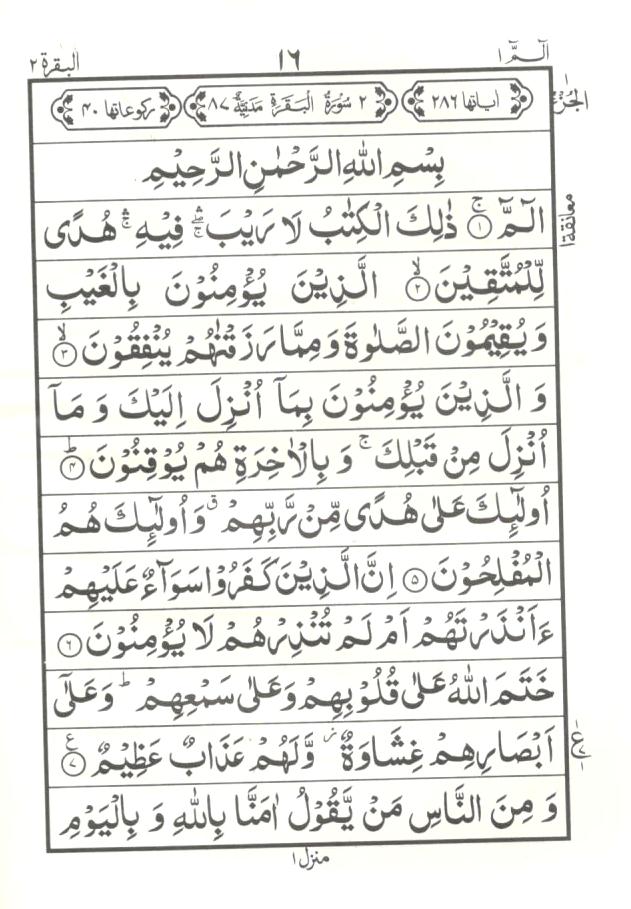 الٓمّٓ ۱ ۱۶ البقرة ۲
الجزء ۱
اٰياتها ۲۸۶ ۲ سُوْرَةُ الْبَقَرَةِ مَدَنِيَّةٌ ۸۷ رکوعاتها ۴۰
بِسْمِ اللّٰهِ الرَّحْمٰنِ الرَّحِيْمِ
الٓمّٓ ۚ﴿۱﴾ ذٰلِكَ الْكِتٰبُ لَا رَيْبَ ۛۚ فِيْهِ ۛۚ هُدًى
معانقة ۱
لِّلْمُتَّقِيْنَ ۙ﴿۲﴾ الَّذِيْنَ يُؤْمِنُوْنَ بِالْغَيْبِ
وَيُقِيْمُوْنَ الصَّلٰوةَ وَمِمَّا رَزَقْنٰهُمْ يُنْفِقُوْنَ ۙ﴿۳﴾
وَالَّذِيْنَ يُؤْمِنُوْنَ بِمَاۤ اُنْزِلَ اِلَيْكَ وَمَاۤ
اُنْزِلَ مِنْ قَبْلِكَ ۚ وَبِالْاٰخِرَةِ هُمْ يُوْقِنُوْنَ ؕ﴿۴﴾
اُولٰٓئِكَ عَلٰى هُدًى مِّنْ رَّبِّهِمْ ۗ وَاُولٰٓئِكَ هُمُ
الْمُفْلِحُوْنَ ﴿۵﴾ اِنَّ الَّذِيْنَ كَفَرُوْا سَوَآءٌ عَلَيْهِمْ
ءَاَنْذَرْتَهُمْ اَمْ لَمْ تُنْذِرْهُمْ لَا يُؤْمِنُوْنَ ﴿۶﴾
خَتَمَ اللّٰهُ عَلٰى قُلُوْبِهِمْ وَعَلٰى سَمْعِهِمْ ؕ وَعَلٰٓى
اَبْصَارِهِمْ غِشَاوَةٌ ؗ وَّلَهُمْ عَذَابٌ عَظِيْمٌ ﴿۷﴾ ع
وَمِنَ النَّاسِ مَنْ يَّقُوْلُ اٰمَنَّا بِاللّٰهِ وَبِالْيَوْمِ
منزل ۱